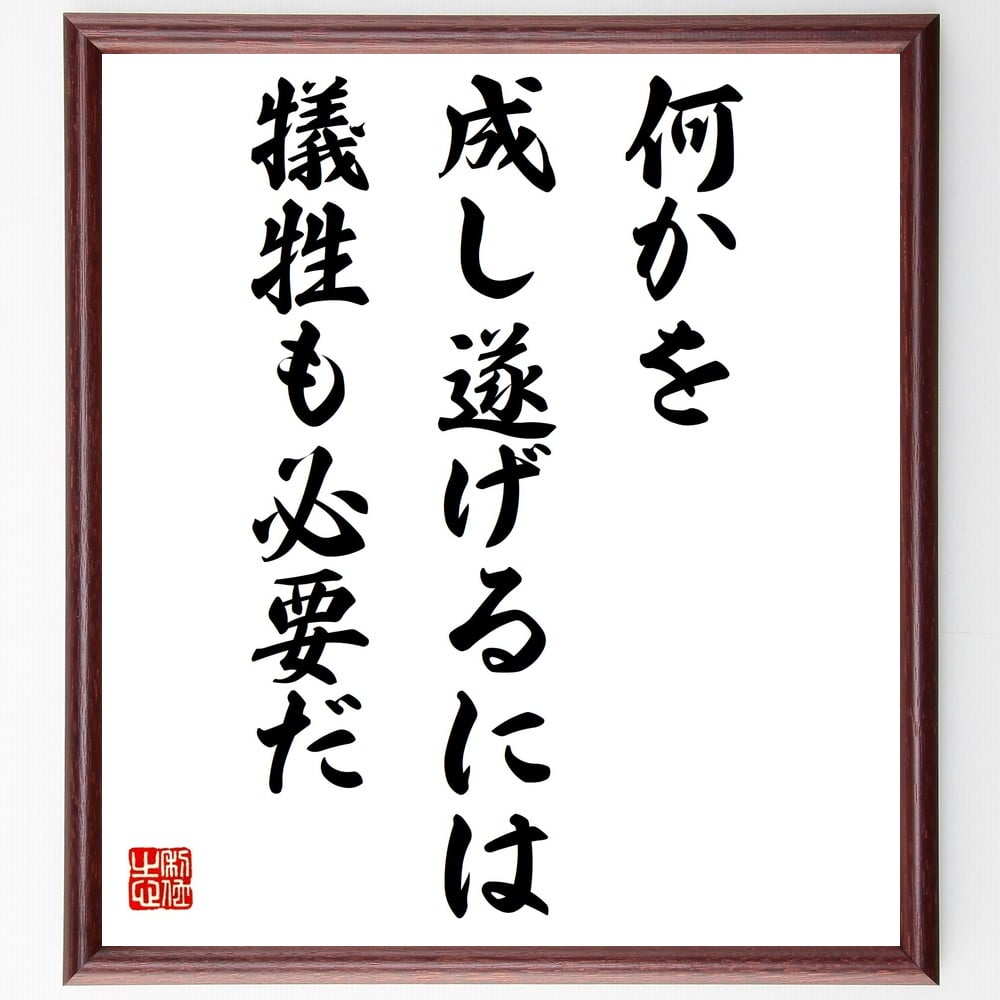 何かを
成し遂げるには
犠牲も必要だ